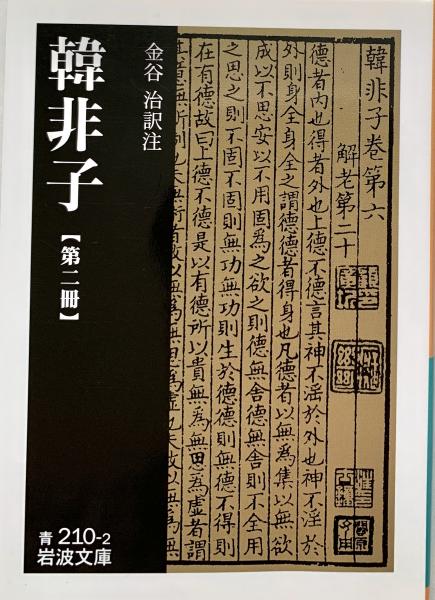 韓非子
【第二冊】
金谷 治訳注
韓非子卷第六
解老第二十
德者内也得者外也上德不德言其神不淫於外也神不淫於
外則身全身全之謂德德者得身也凡德者以無為集以無欲
成以不思安以不用固為之欲之則德無舍德無舍則不全用
之思之則不固不固則無功無功則生於德德則無德不得則
在有德故曰上德不德是以有德所以貴無為無思為虛者謂
青 210-2
岩波文庫